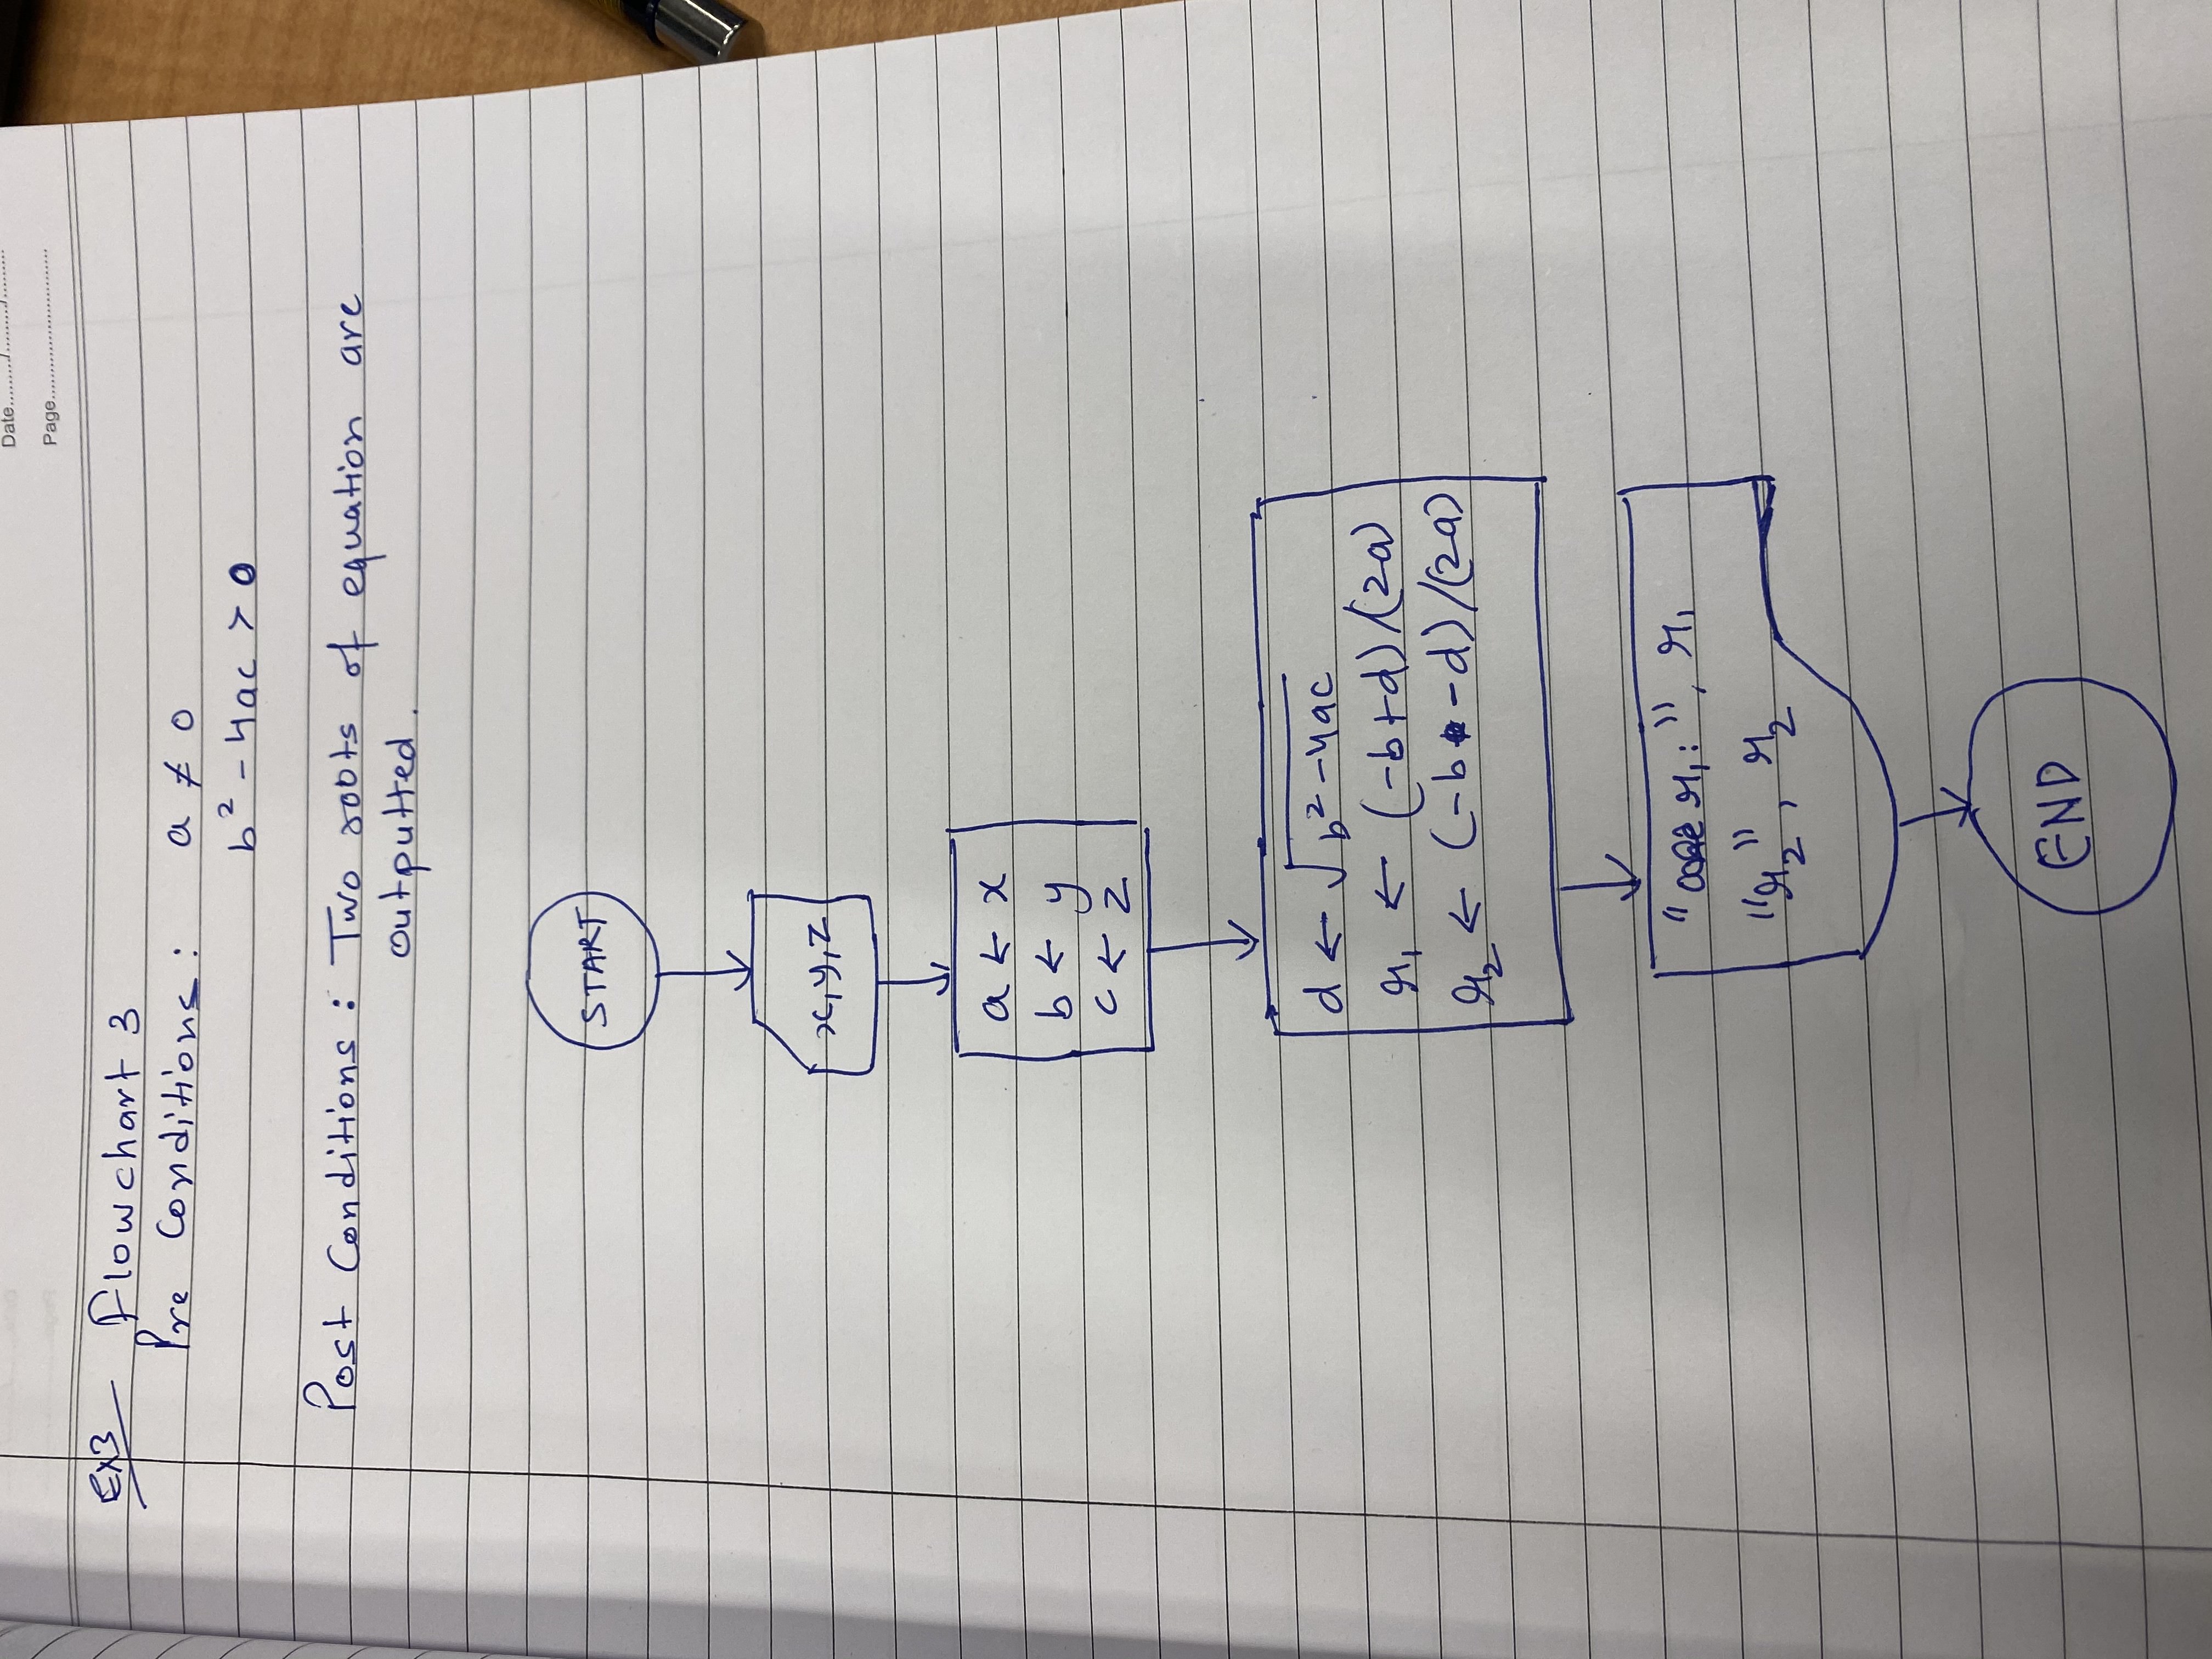 Date........./........./.........
Page..............................
Ex3 Flowchart 3
Pre Conditions: a ≠ 0
b² - 4ac > 0
Post Conditions: Two roots of equation are
outputted.
START
x, y, z
a ← x
b ← y
c ← z
d ← √b² - 4ac
r₁ ← (-b+d)/(2a)
r₂ ← (-b - d)/(2a)
" r₁:", r₁
"r₂", r₂
END